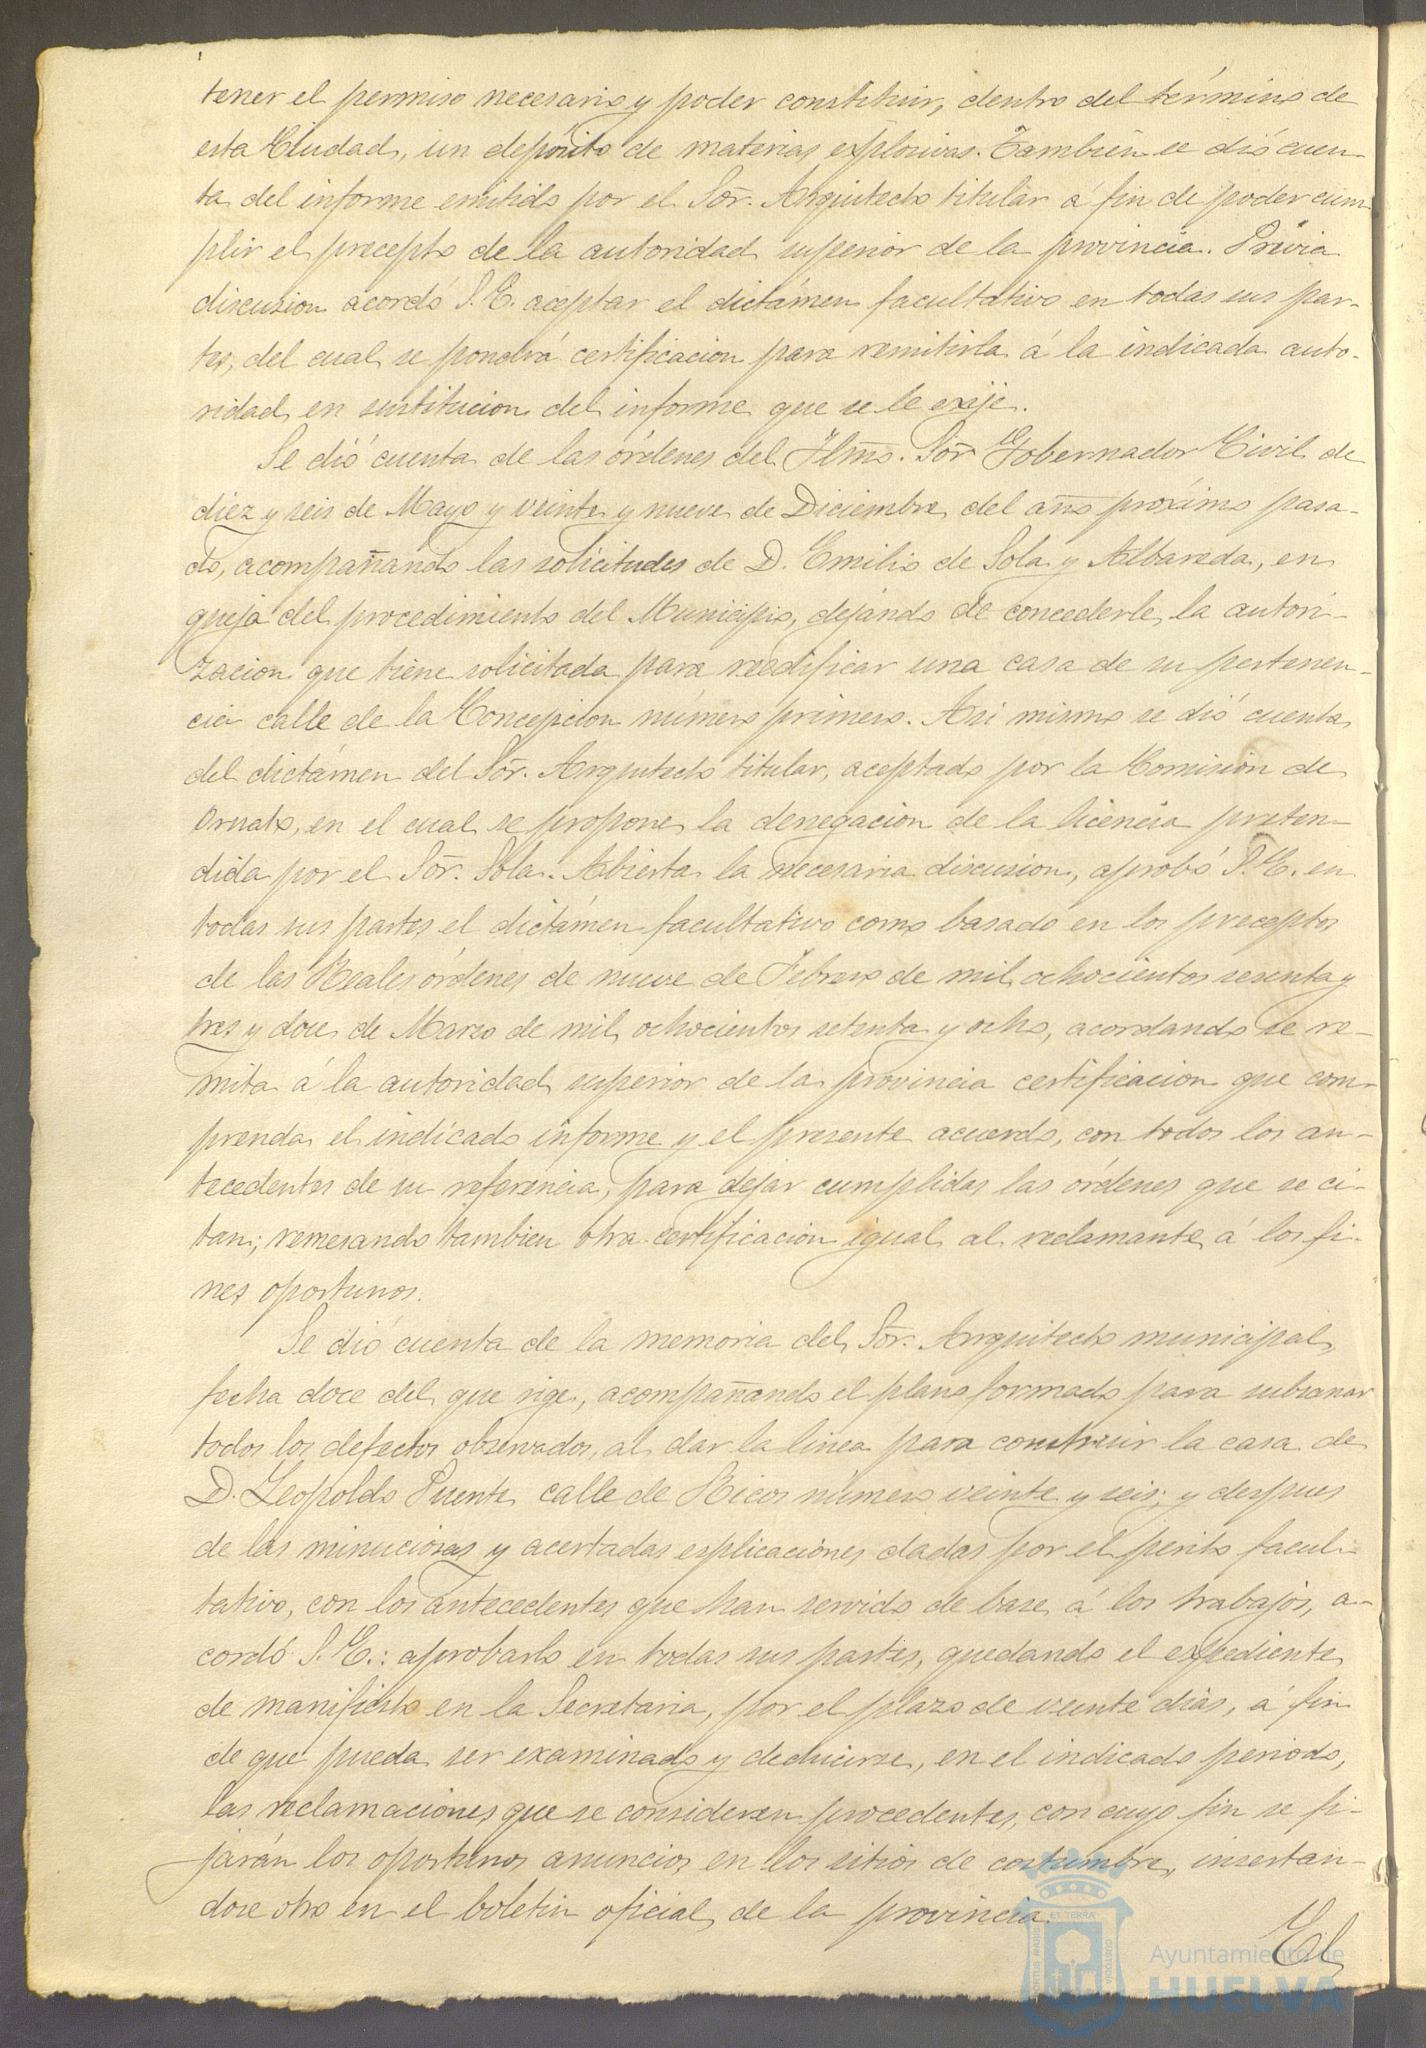 tener el permiso necesario y poder constituir, dentro del término de
esta Ciudad, un depósito de materias explosivas. Tambien se dió cuen-
ta del informe emitido por el Sor. Arquitecto titular á fin de poder cum
plir el precepto de la autoridad superior de la provincia. Prévia
discusion acordó S.E. aceptar el dictámen facultativo en todas sus par-
tes, del cual se pondrá certificacion para remitirla á la indicada auto-
ridad en sustitucion del informe que se le exije.
Se dió cuenta de las órdenes del Ilmo. Sor Gobernador Civil de
diez y seis de Mayo y veinte y nueve de Diciembre del año próximo pasa-
do, acompañando las solicitudes de D. Emilio de Sola y Albareda, en
queja del procedimiento del Municipio, dejando de concederle la autori-
zacion que tiene solicitada para reedificar una casa de su pertenen-
cia calle de la Concepcion número primero. Asi mismo se dió cuenta
del dictámen del Sor. Arquitecto titular, aceptado por la Comision de
Ornato, en el cual se propone la denegacion de la licencia preten-
dida por el Sor. Sola. Abierta la necesaria discusion, aprobó S.E. en
todas sus partes el dictámen facultativo como basado en los preceptos
de las Reales órdenes de nueve de Febrero de mil ochocientos sesenta y
tres y doce de Marzo de mil ochocientos setenta y ocho, acordando se re-
mita á la autoridad superior de la provincia certificacion que com-
prenda el indicado informe y el presente acuerdo, con todos los an-
tecedentes de su referencia, para dejar cumplidas las órdenes que se ci-
tan; remesando tambien otra certificacion igual al reclamante á los fi-
nes oportunos.
Se dió cuenta de la memoria del Sor. Arquitecto municipal,
fecha doce del que rige, acompañando el plano formado para subsanar
todos los defectos observados, al dar la linea para construir la casa de
D. Leopoldo Puente calle de Ricos número veinte y seis; y despues
de las minuciosas y acertadas esplicaciones dadas por el perito facul-
tativo, con los antecedentes que han servido de base á los trabajos, a-
cordó S.E.: aprobarlo en todas sus partes, quedando el expediente
de manifiesto en la Secretaria, por el plazo de veinte dias, á fin
de que pueda ser examinado y deducirse, en el indicado periodo,
las reclamaciones que se consideren procedentes, con cuyo fin se fi-
jarán los oportunos anuncios en los sitios de costumbre, insertan-
dose otro en el boletin oficial de la provincia.
El
Ayuntamiento de
HUELVA